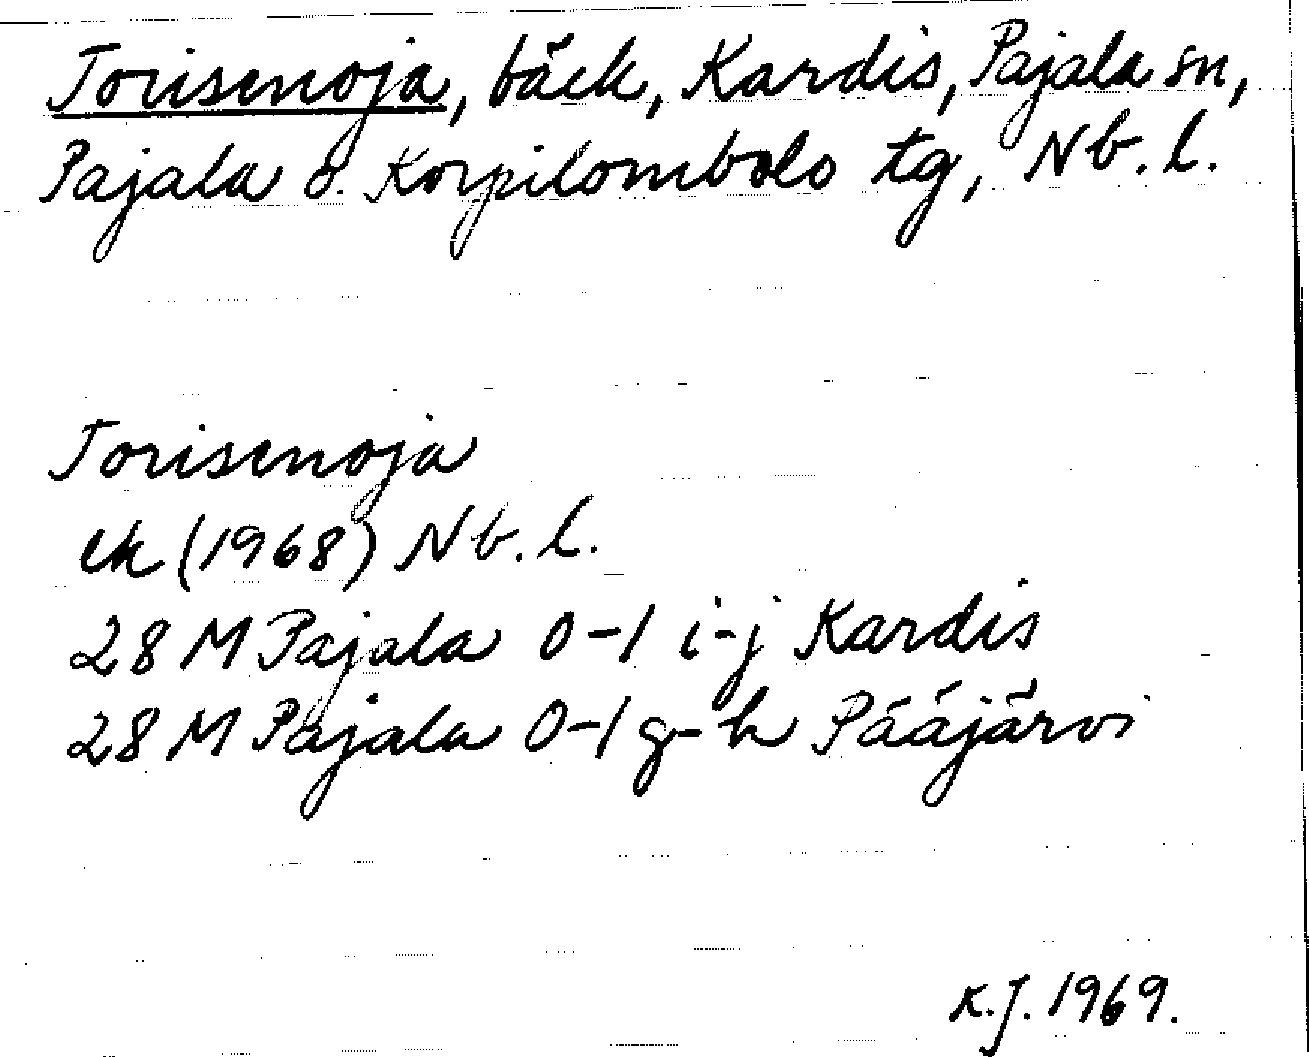 Torisenoja, bäck, Kardis, Pajala sn,
Pajala o. Korpilombolo tg, Nb. l.
Torisenoja
ek (1968) Nb. l.
28 M Pajala 0-1 i-j Kardis
28 M Pajala 0-1 g-h Pääjärvi
K.J. 1969.